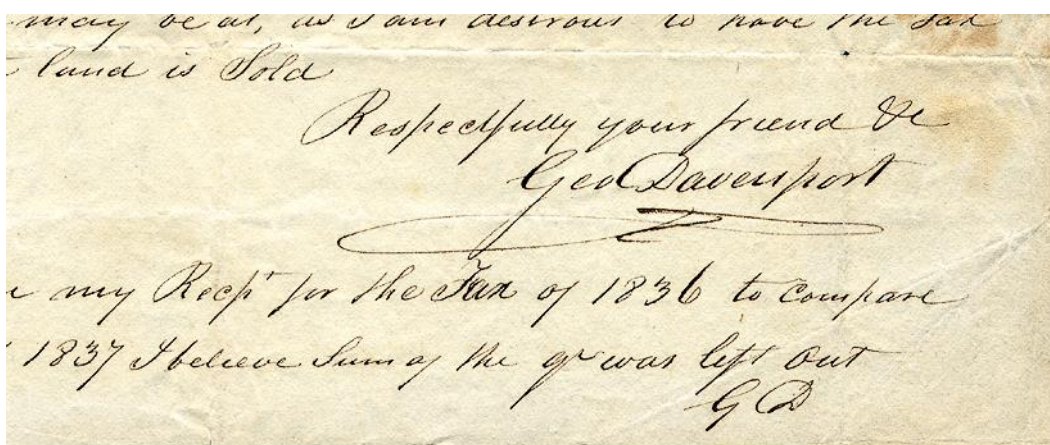 may be at, as I am desirous to have the Tax
land is Sold
Respectfully your friend &c
Geo Davenport
my Recpt for the Tax of 1836 to compare
1837 I believe Sum of the qr was left out
G D